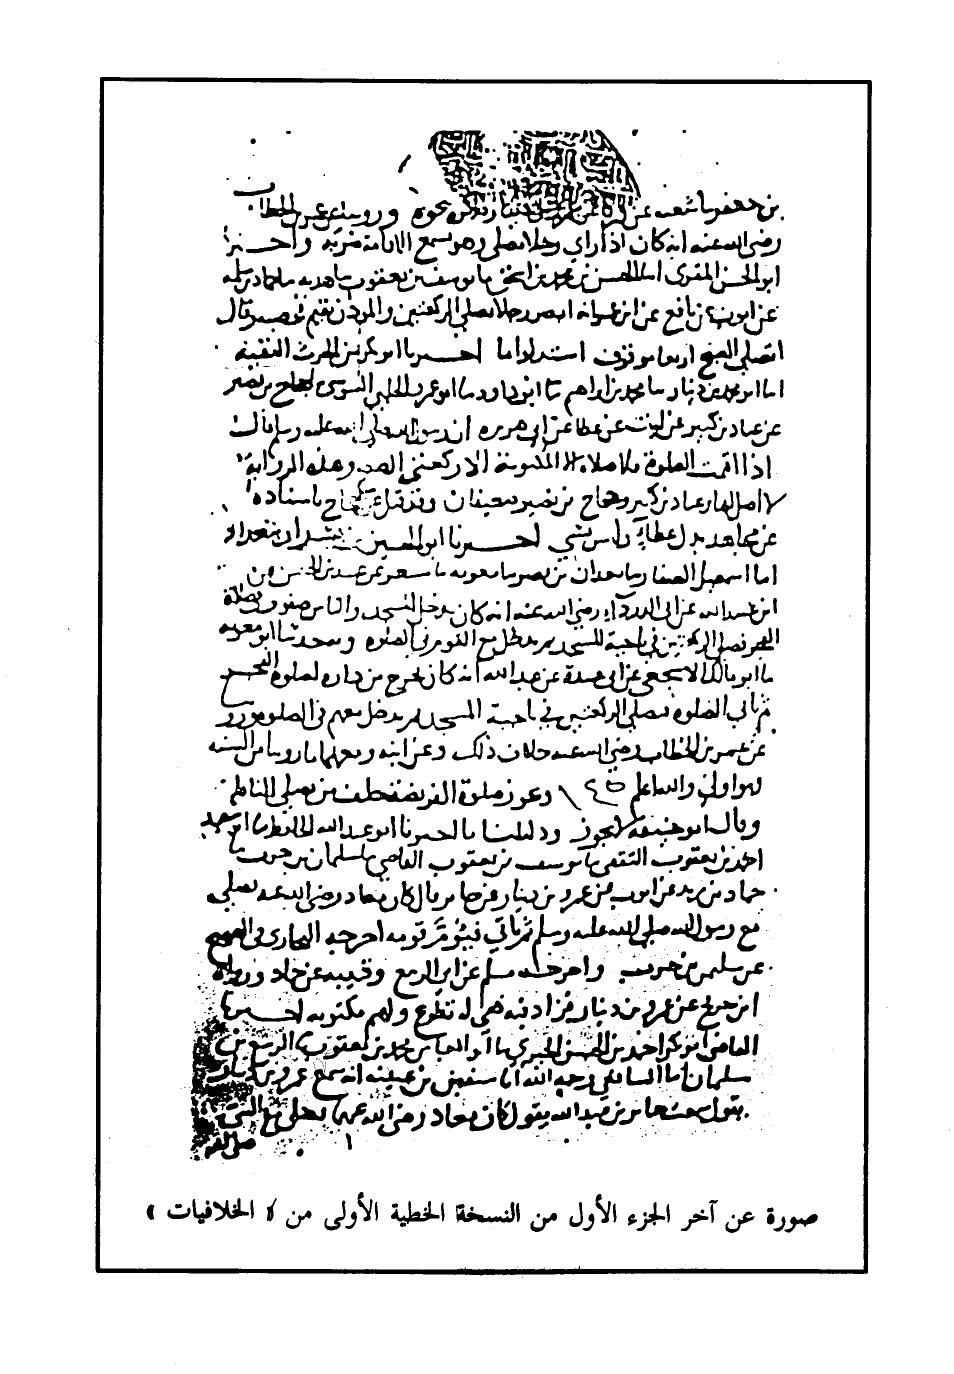 بن جعفر ما شعبه عن نحوه وروينا عن عمر بن الخطاب
رضي الله عنه انه كان اذا راى رجلا يصلي وهو يسمع الاقامة ضربه واخبرنا
ابو الحسن المقرى انا الحسن بن محمد بن اسحق ما يوسف بن يعقوب ما
عن ايوب عن نافع عن ابن عمر انه ابصر رجلا يصلي الركعتين والموذن يقيم وقال
اتصلي الصبح اربعا اخبرنا ابو بكر بن الحرث الفقيه
انا ابو محمد بن ما محمد بن ابراهيم ما ابو داود ما ابو عمر الحلبي ما حجاج بن نصير
عن عباد بن كثير عن ليث عن عطا عن ابي هريره ان رسول الله صلى الله عليه وسلم قال
اذا اقيمت الصلوة فلا صلاه الا المكتوبة الا ركعتي الصبح وهذه الزيادة
لا اصل لها وعباد بن كثير وحجاج بن نصير ضعيفان وقد قيل عن حجاج باسناده
عن مجاهد بدل عطا وليس بشي اخبرنا ابو الحسين بن بشران ببغداد
انا اسمعيل الصفار ما سعدان بن نصر ما معويه ما مسعر عن عبيد بن الحسن عن
ابن عبيد الله عن ابي الدرداء رضي الله عنه انه كان يدخل المسجد والناس صفوف في صلاة
الفجر فصلى الركعتين في ناحية المسجد ثم يدخل مع القوم في الصلوه وما ابو معويه
ما ابو مالك الاشجعي عن ابي عبيدة عن عبد الله انه كان يخرج من داره لصلوة الفجر
ثم ياتي الصلوه فيصلي الركعتين في ناحية المسجد ثم يدخل معهم في الصلوه وروى
عن عمر بن الخطاب رضي الله عنه خلاف ذلك وعن ابنه ومعهما ما روينا من السنة
فهو اولى والله اعلم وتجوز صلوة الفريضة خلف من يصلي النافلة
وقال ابو حنيفة لا يجوز ودليلنا ما اخبرنا ابو عبد الله الحافظ ما ابو سعيد
احمد بن يعقوب الثقفي ما يوسف بن يعقوب القاضي ما سلمان بن حرب ما
حماد بن زيد عن ايوب عن عمرو بن دينار عن جابر قال كان معاذ رضي الله عنه يصلي
مع رسول الله صلى الله عليه وسلم ثم ياتي فيؤم قومه اخرجه البخاري في الصحيح
عن سليمن بن حرب واخرجه مسلم عن ابي الربيع وقتيبه عن حماد ورواه
ابن جريج عن عمرو بن دينار فزاد فيه هي له تطوع ولهم مكتوبه اخبرنا
القاضي ابو بكر احمد بن الحسن الحيري ما ابو العباس محمد بن يعقوب ما الربيع بن
سلمان انا الشافعي رحمه الله انا سفين بن عيينه انه سمع عمرو بن دينار
يقول سمعت جابر بن عبد الله يقول كان معاذ رضي الله عنه يصلي مع النبي
صلى الله
صورة عن آخر الجزء الأول من النسخة الخطية الأولى من « الخلافيات »